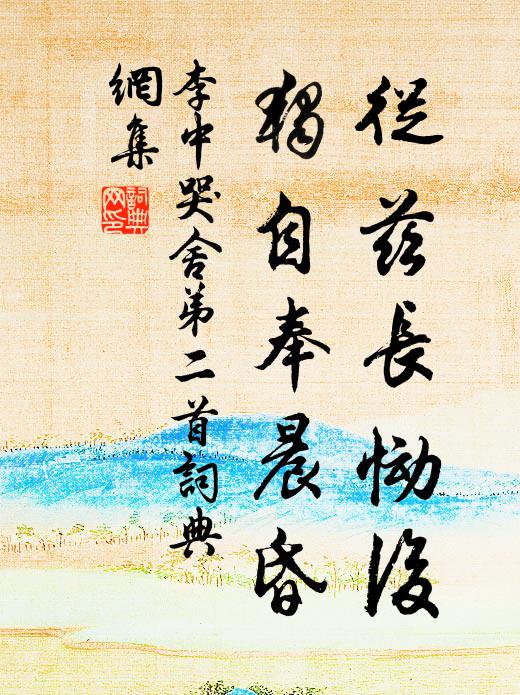 從茲長慟後
獨自奉晨昏
李中哭舍弟二首詞典
網集
詞典網印